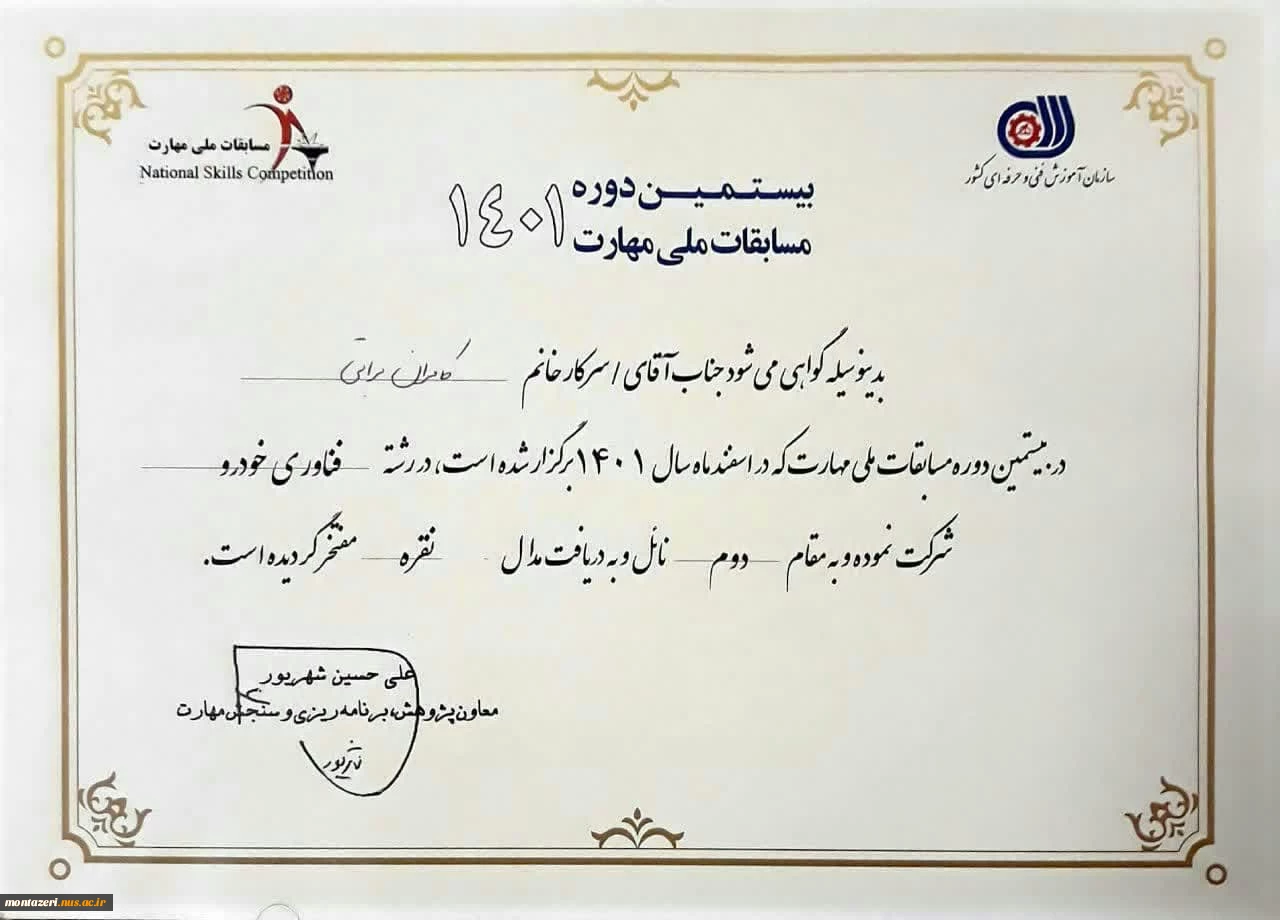 سازمان آموزش فنی و حرفه ای کشور
مسابقات ملی مهارت
National Skills Competition
بیستمین دوره
مسابقات ملی مهارت
۱۴۰۱
بدینوسیله گواهی می شود جناب آقای / سرکار خانم کامران براتی
در بیستمین دوره مسابقات ملی مهارت که در اسفند ماه سال ۱۴۰۱ برگزار شده است، در رشته فناوری خودرو
شرکت نموده و به مقام دوم نائل و به دریافت مدال نقره مفتخر گردیده است.
علی حسین شهریور
معاون پژوهش، برنامه ریزی و سنجش مهارت
montazeri.nus.ac.ir